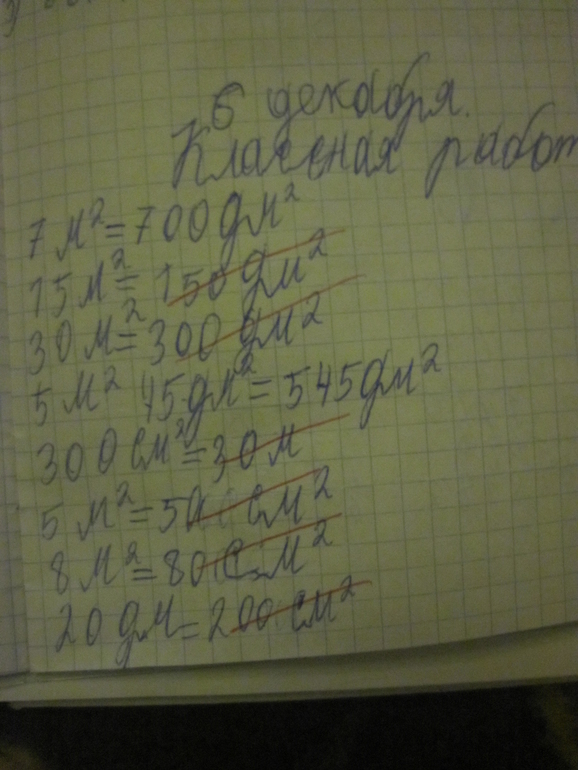 6 декабря.
Классная работ
7 м² = 700 дм²
15 м² = 150 дм²
30 м² = 300 дм²
5 м² 45 дм² = 545 дм²
300 см² = 30 м
5 м² = 500 см²
8 м² = 80 см²
20 дм = 200 см²